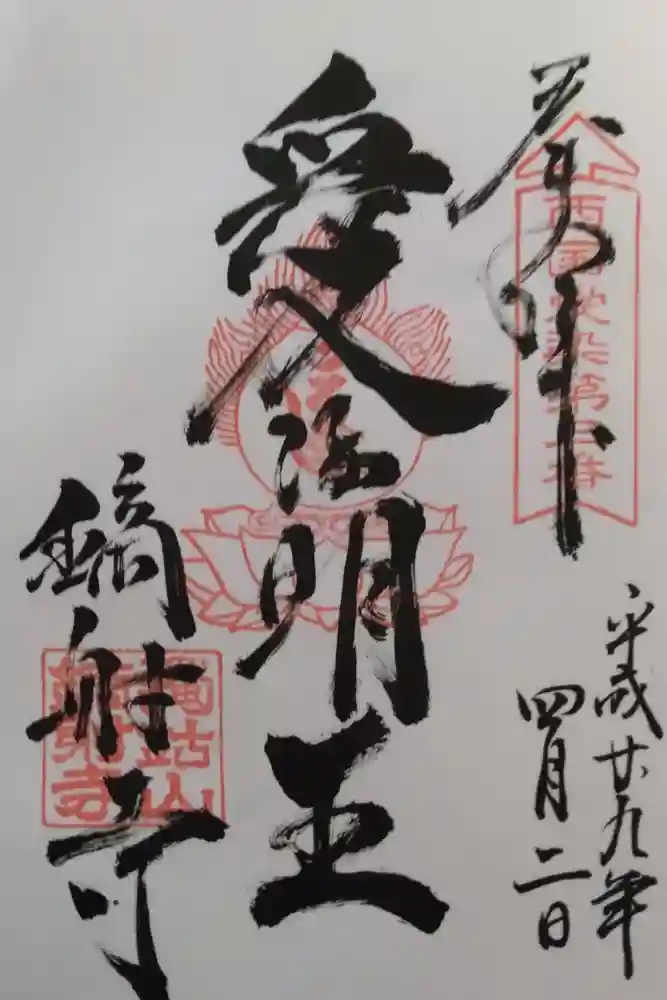 奉拝
西国愛染第三番
平成廿九年
四月二日
愛染明王
鏑射寺
鏑射山
鏑射寺